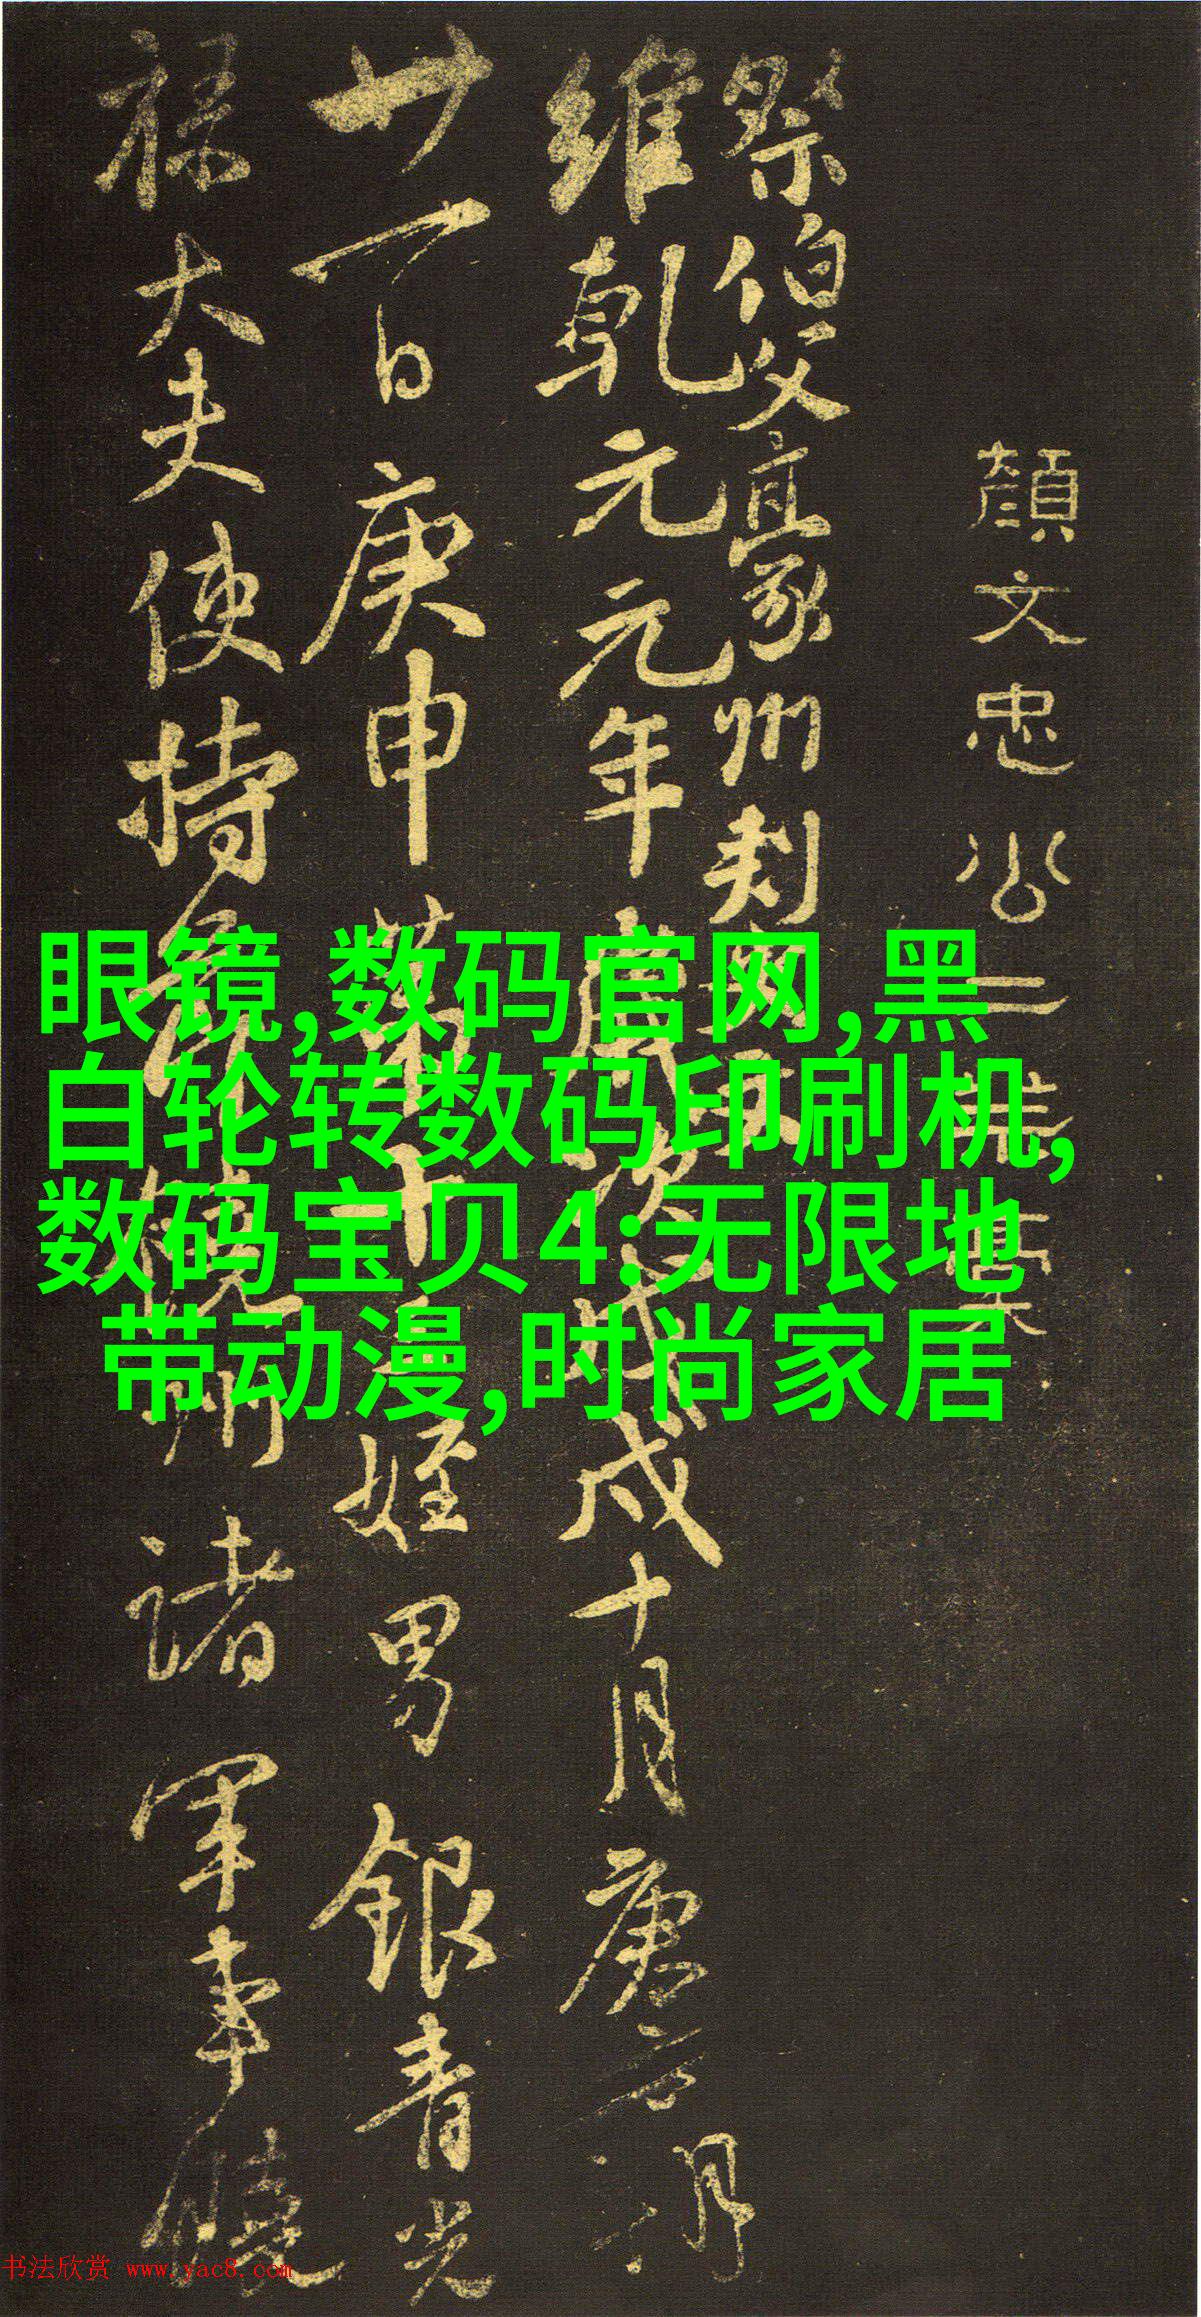 顏文忠公二
祭伯父豪州刺
維乾元元年歲次戊戌十月庚朔
廿一日庚申第十姪男銀青光
祿大夫使持節饒州諸軍事饒
眼镜,数码官网,黑
白轮转数码印刷机,
数码宝贝4:无限地
带动漫,时尚家居
书法欣赏 www.yac8.com